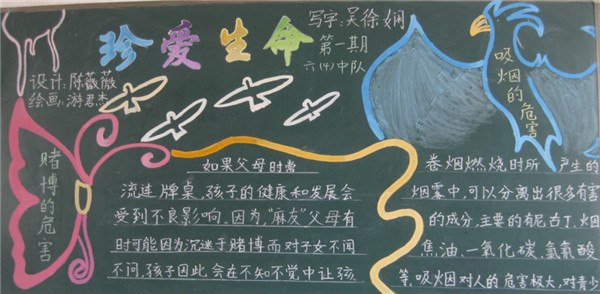 珍爱生命
写字:吴徐娴
第一期
六(4)中队
设计:陈薇薇
绘画:游君杰
赌博的危害
如果父母时常
流连牌桌,孩子的健康和发展会
受到不良影响,因为“麻友”父母有
时可能因为沉迷于赌博而对子女不闻
不问,孩子因此会在不知不觉中让孩
吸烟的危害
卷烟燃烧时所产生的
烟雾中,可以分离出很多有害
的成分,主要的有尼古丁、烟
焦油、一氧化碳、氢氰酸
等,吸烟对人的危害极大,对青少